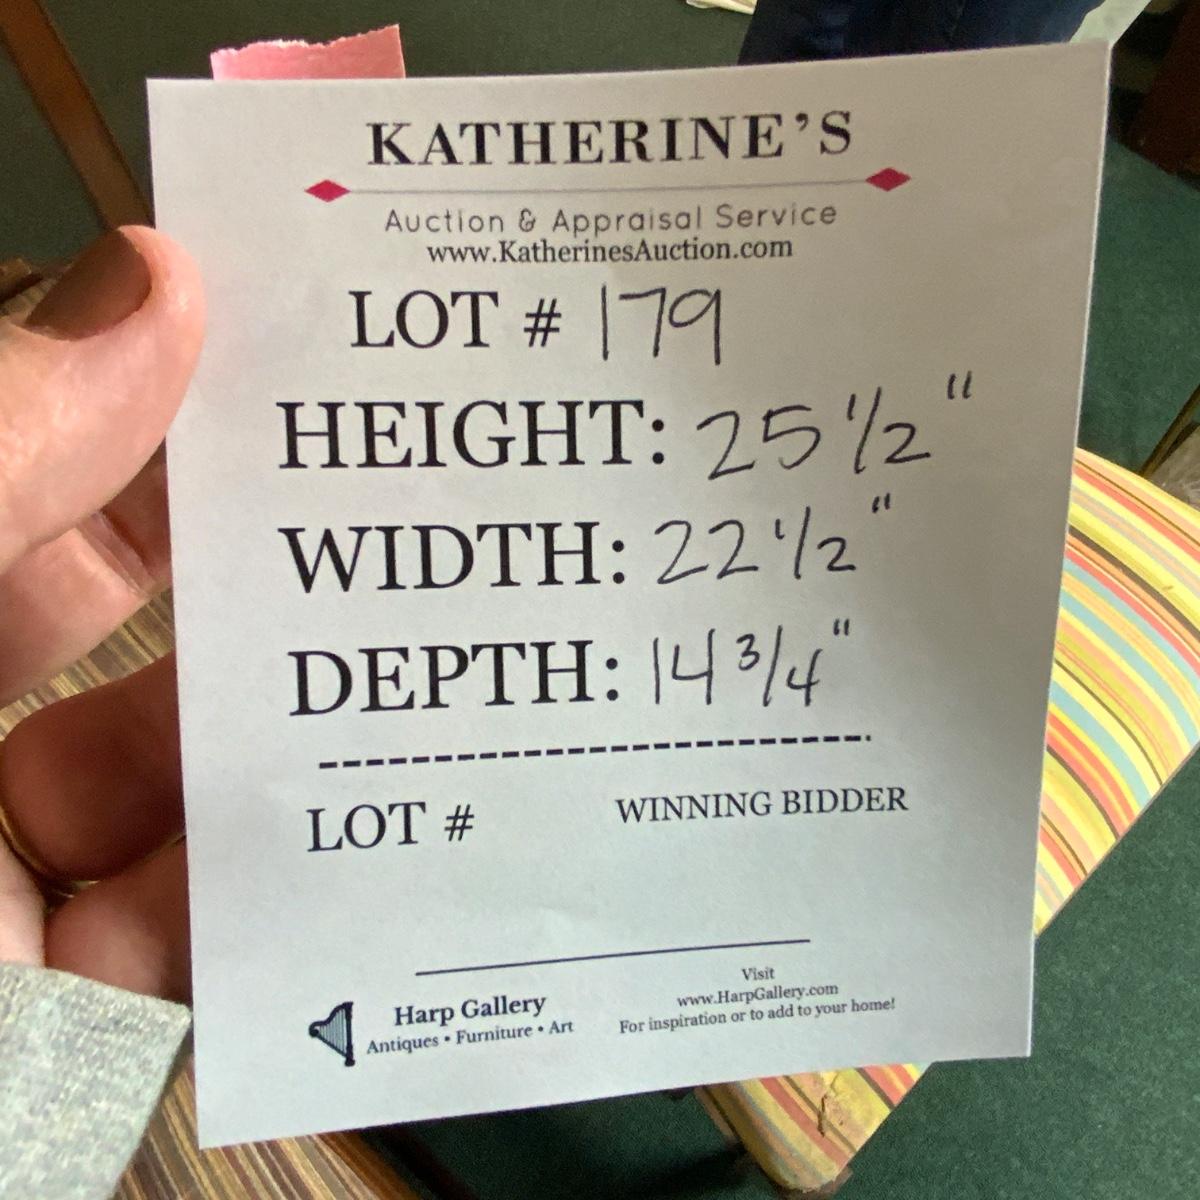 KATHERINE'S
Auction & Appraisal Service
www.KatherinesAuction.com
LOT # 179
HEIGHT: 25 1/2"
WIDTH: 22 1/2"
DEPTH: 14 3/4"
LOT # WINNING BIDDER
Harp Gallery
Antiques • Furniture • Art
Visit
www.HarpGallery.com
For inspiration or to add to your home!